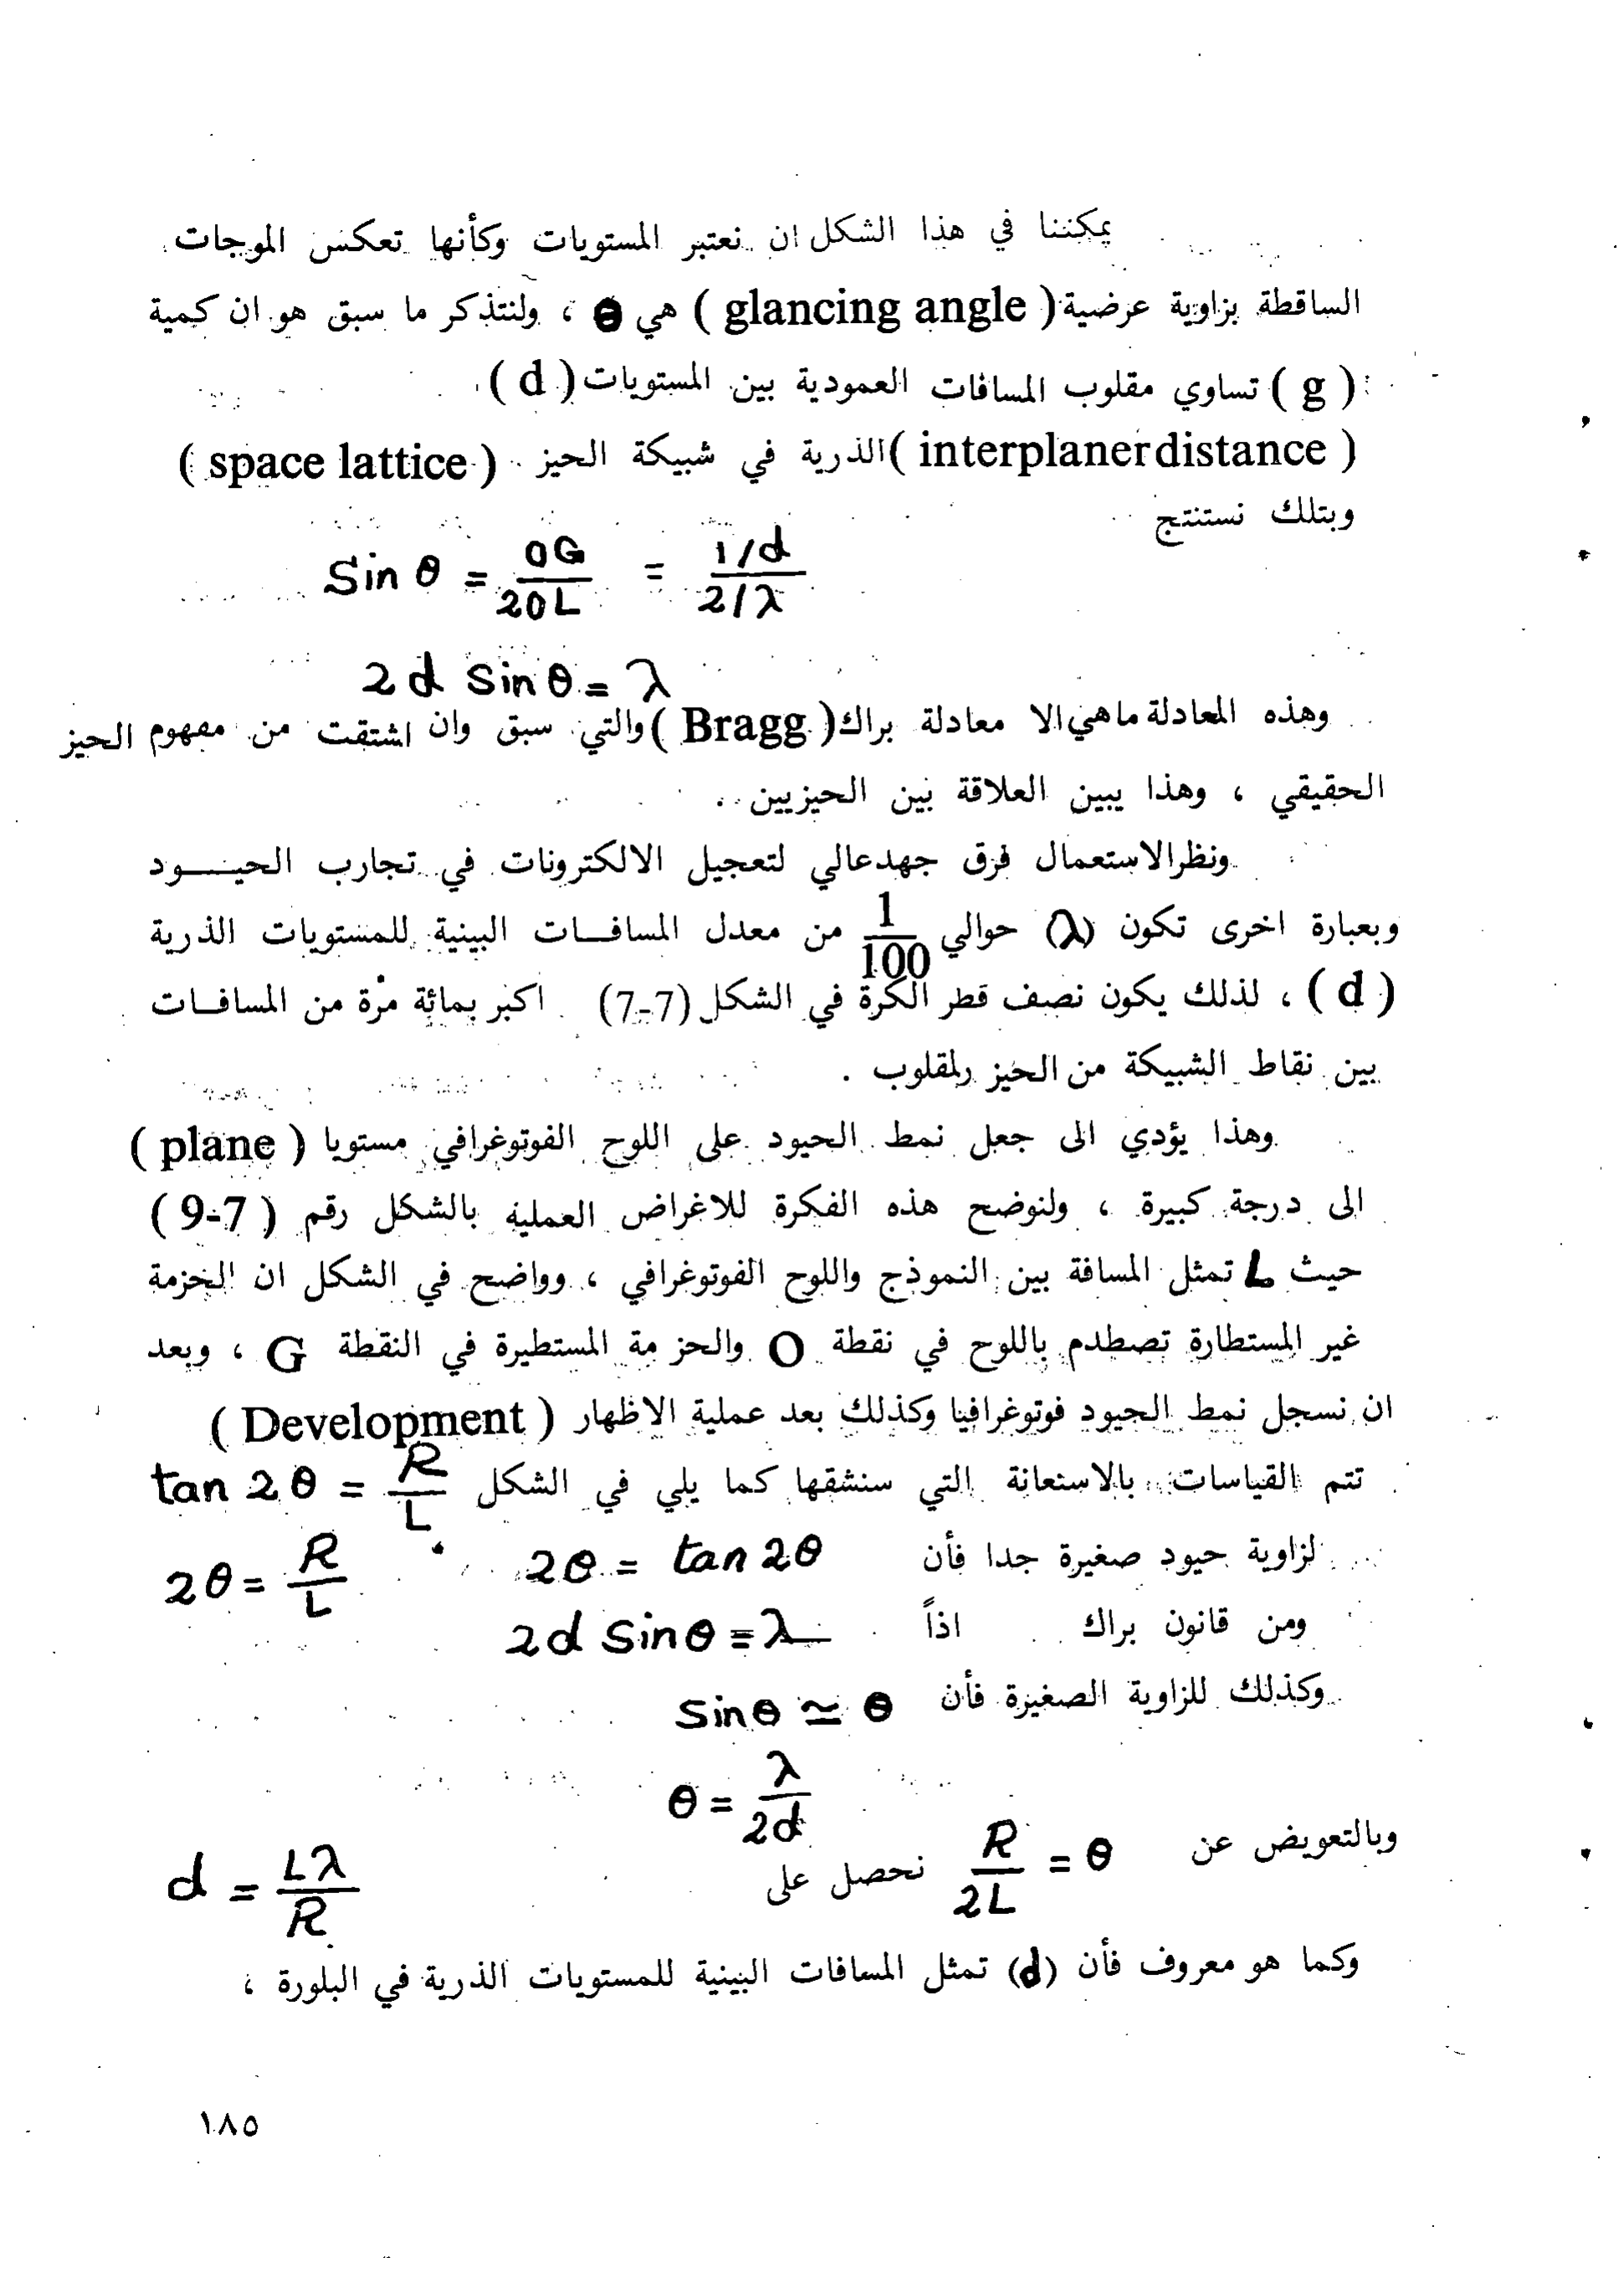 يمكننا في هذا الشكل ان نعتبر المستويات وكأنها تعكس الموجات
الساقطة بزاوية عرضية ( glancing angle ) هي θ ، ولنتذكر ما سبق هو ان كمية
( g ) تساوي مقلوب المسافات العمودية بين المستويات ( d )
( interplaner distance ) الذرية في شبيكة الحيز ( space lattice )
وبتلك نستنتج
Sin θ = OG / 2OL = 1/d / 2/λ
2 d Sin θ = λ
وهذه المعادلة ماهي الا معادلة براك ( Bragg ) والتي سبق وان اشتقت من مفهوم الحيز
الحقيقي ، وهذا يبين العلاقة بين الحيزيين .
ونظرالاستعمال فرق جهدعالي لتعجيل الالكترونات في تجارب الحيــود
وبعبارة اخرى تكون (λ) حوالي 1/100 من معدل المسافــات البينية للمستويات الذرية
( d ) ، لذلك يكون نصف قطر الكرة في الشكل (7-7) اكبر بمائة مرة من المسافــات
بين نقاط الشبيكة من الحيز المقلوب .
وهذا يؤدي الى جعل نمط الحيود على اللوح الفوتوغرافي مستويا ( plane )
الى درجة كبيرة ، ولنوضح هذه الفكرة للاغراض العملية بالشكل رقم ( 7-9 )
حيث L تمثل المسافة بين النموذج واللوح الفوتوغرافي ، وواضح في الشكل ان الحزمة
غير المستطارة تصطدم باللوح في نقطة O والحز مة المستطيرة في النقطة G ، وبعد
ان نسجل نمط الحيود فوتوغرافيا وكذلك بعد عملية الاظهار ( Development )
تتم القياسات بالاستعانة التي سنشقها كما يلي في الشكل tan 2θ = R / L
لزاوية حيود صغيرة جدا فأن 2θ = tan 2θ 2θ = R / L
ومن قانون براك اذاً 2d Sinθ = λ
وكذلك للزاوية الصغيرة فأن Sinθ ≃ θ
θ = λ / 2d
وبالتعويض عن R / 2L = θ نحصل على d = Lλ / R
وكما هو معروف فأن (d) تمثل المسافات البينية للمستويات الذرية في البلورة ،
١٨٥